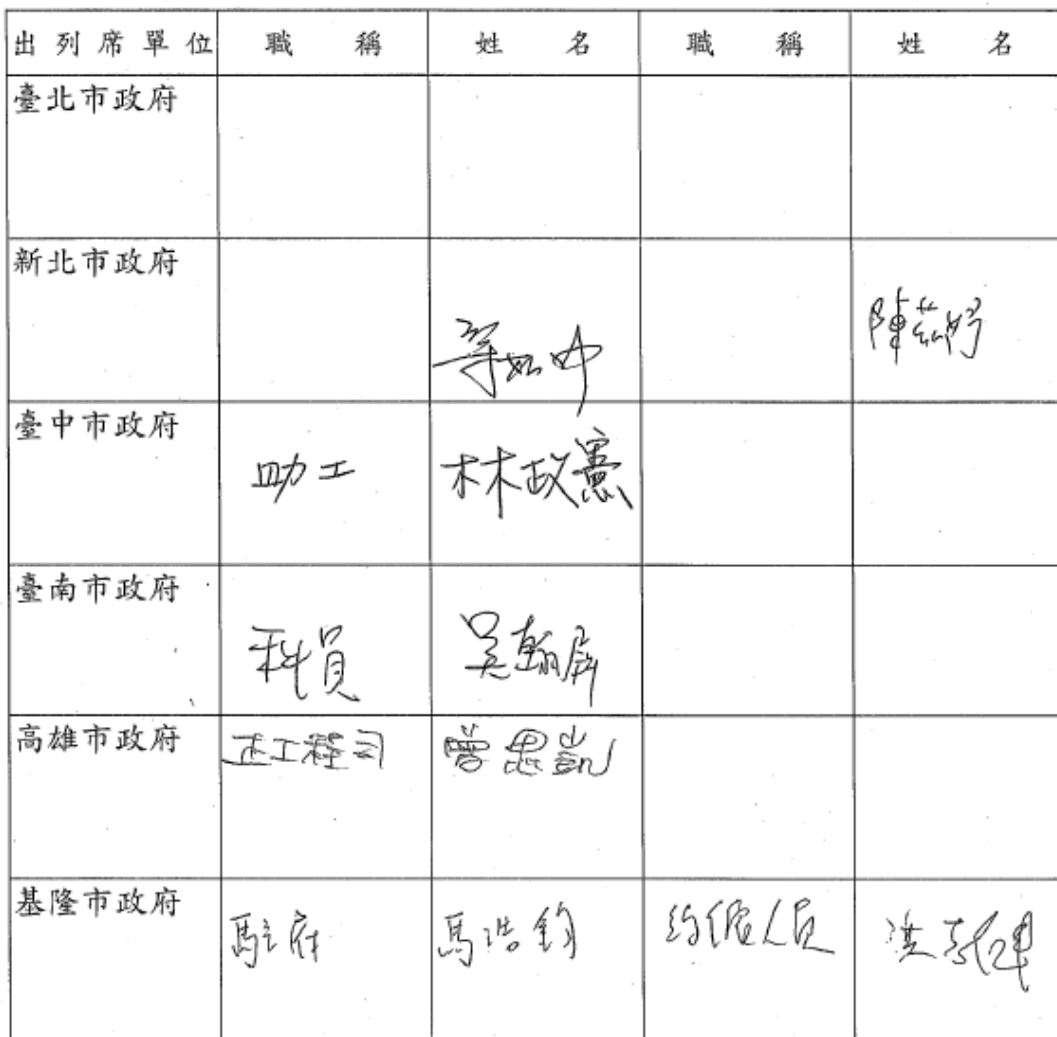 出列席單位 職稱 姓名 職稱 姓名
臺北市政府
新北市政府
陳茲妤
臺中市政府
助工 林政憲
臺南市政府
科員 吳翰屏
高雄市政府 正工程司 曾思凱
基隆市政府
馬浩鈞 約僱人員